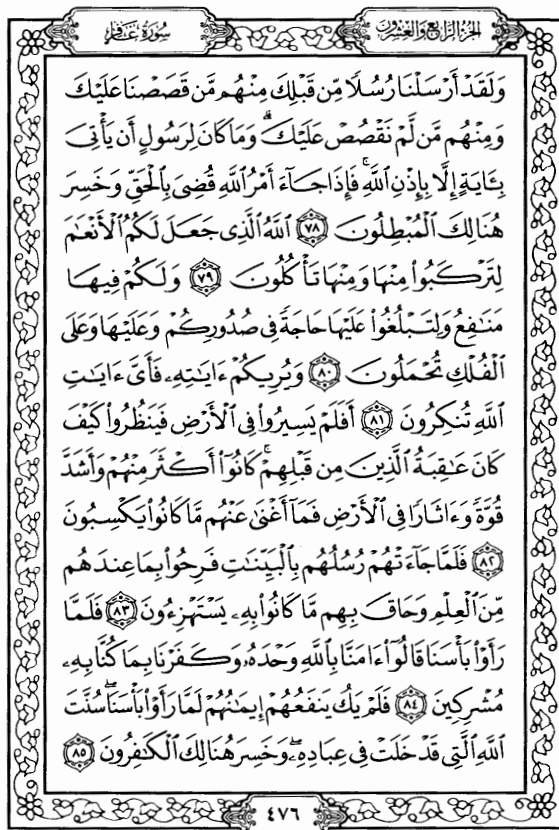 الجزء الرابع والعشرون
سورة غافر
وَلَقَدْ أَرْسَلْنَا رُسُلًا مِّن قَبْلِكَ مِنْهُم مَّن قَصَصْنَا عَلَيْكَ
وَمِنْهُم مَّن لَّمْ نَقْصُصْ عَلَيْكَ ۗ وَمَا كَانَ لِرَسُولٍ أَن يَأْتِىَ
بِـَٔايَةٍ إِلَّا بِإِذْنِ اللَّهِ ۚ فَإِذَا جَآءَ أَمْرُ اللَّهِ قُضِىَ بِالْحَقِّ وَخَسِرَ
هُنَالِكَ الْمُبْطِلُونَ ٧٨ اللَّهُ الَّذِى جَعَلَ لَكُمُ الْأَنْعَٰمَ
لِتَرْكَبُوا۟ مِنْهَا وَمِنْهَا تَأْكُلُونَ ٧٩ وَلَكُمْ فِيهَا
مَنَٰفِعُ وَلِتَبْلُغُوا۟ عَلَيْهَا حَاجَةً فِى صُدُورِكُمْ وَعَلَيْهَا وَعَلَى
الْفُلْكِ تُحْمَلُونَ ٨٠ وَيُرِيكُمْ ءَايَٰتِهِۦ فَأَىَّ ءَايَٰتِ
اللَّهِ تُنكِرُونَ ٨١ أَفَلَمْ يَسِيرُوا۟ فِى الْأَرْضِ فَيَنظُرُوا۟ كَيْفَ
كَانَ عَٰقِبَةُ الَّذِينَ مِن قَبْلِهِمْ ۚ كَانُوٓا۟ أَكْثَرَ مِنْهُمْ وَأَشَدَّ
قُوَّةً وَءَاثَارًا فِى الْأَرْضِ فَمَآ أَغْنَىٰ عَنْهُم مَّا كَانُوا۟ يَكْسِبُونَ
٨٢ فَلَمَّا جَآءَتْهُمْ رُسُلُهُم بِالْبَيِّنَٰتِ فَرِحُوا۟ بِمَا عِندَهُم
مِّنَ الْعِلْمِ وَحَاقَ بِهِم مَّا كَانُوا۟ بِهِۦ يَسْتَهْزِءُونَ ٨٣ فَلَمَّا
رَأَوْا۟ بَأْسَنَا قَالُوٓا۟ ءَامَنَّا بِاللَّهِ وَحْدَهُۥ وَكَفَرْنَا بِمَا كُنَّا بِهِۦ
مُشْرِكِينَ ٨٤ فَلَمْ يَكُ يَنفَعُهُمْ إِيمَٰنُهُمْ لَمَّا رَأَوْا۟ بَأْسَنَا ۖ سُنَّتَ
اللَّهِ الَّتِى قَدْ خَلَتْ فِى عِبَادِهِۦ ۖ وَخَسِرَ هُنَالِكَ الْكَٰفِرُونَ ٨٥
٤٧٦